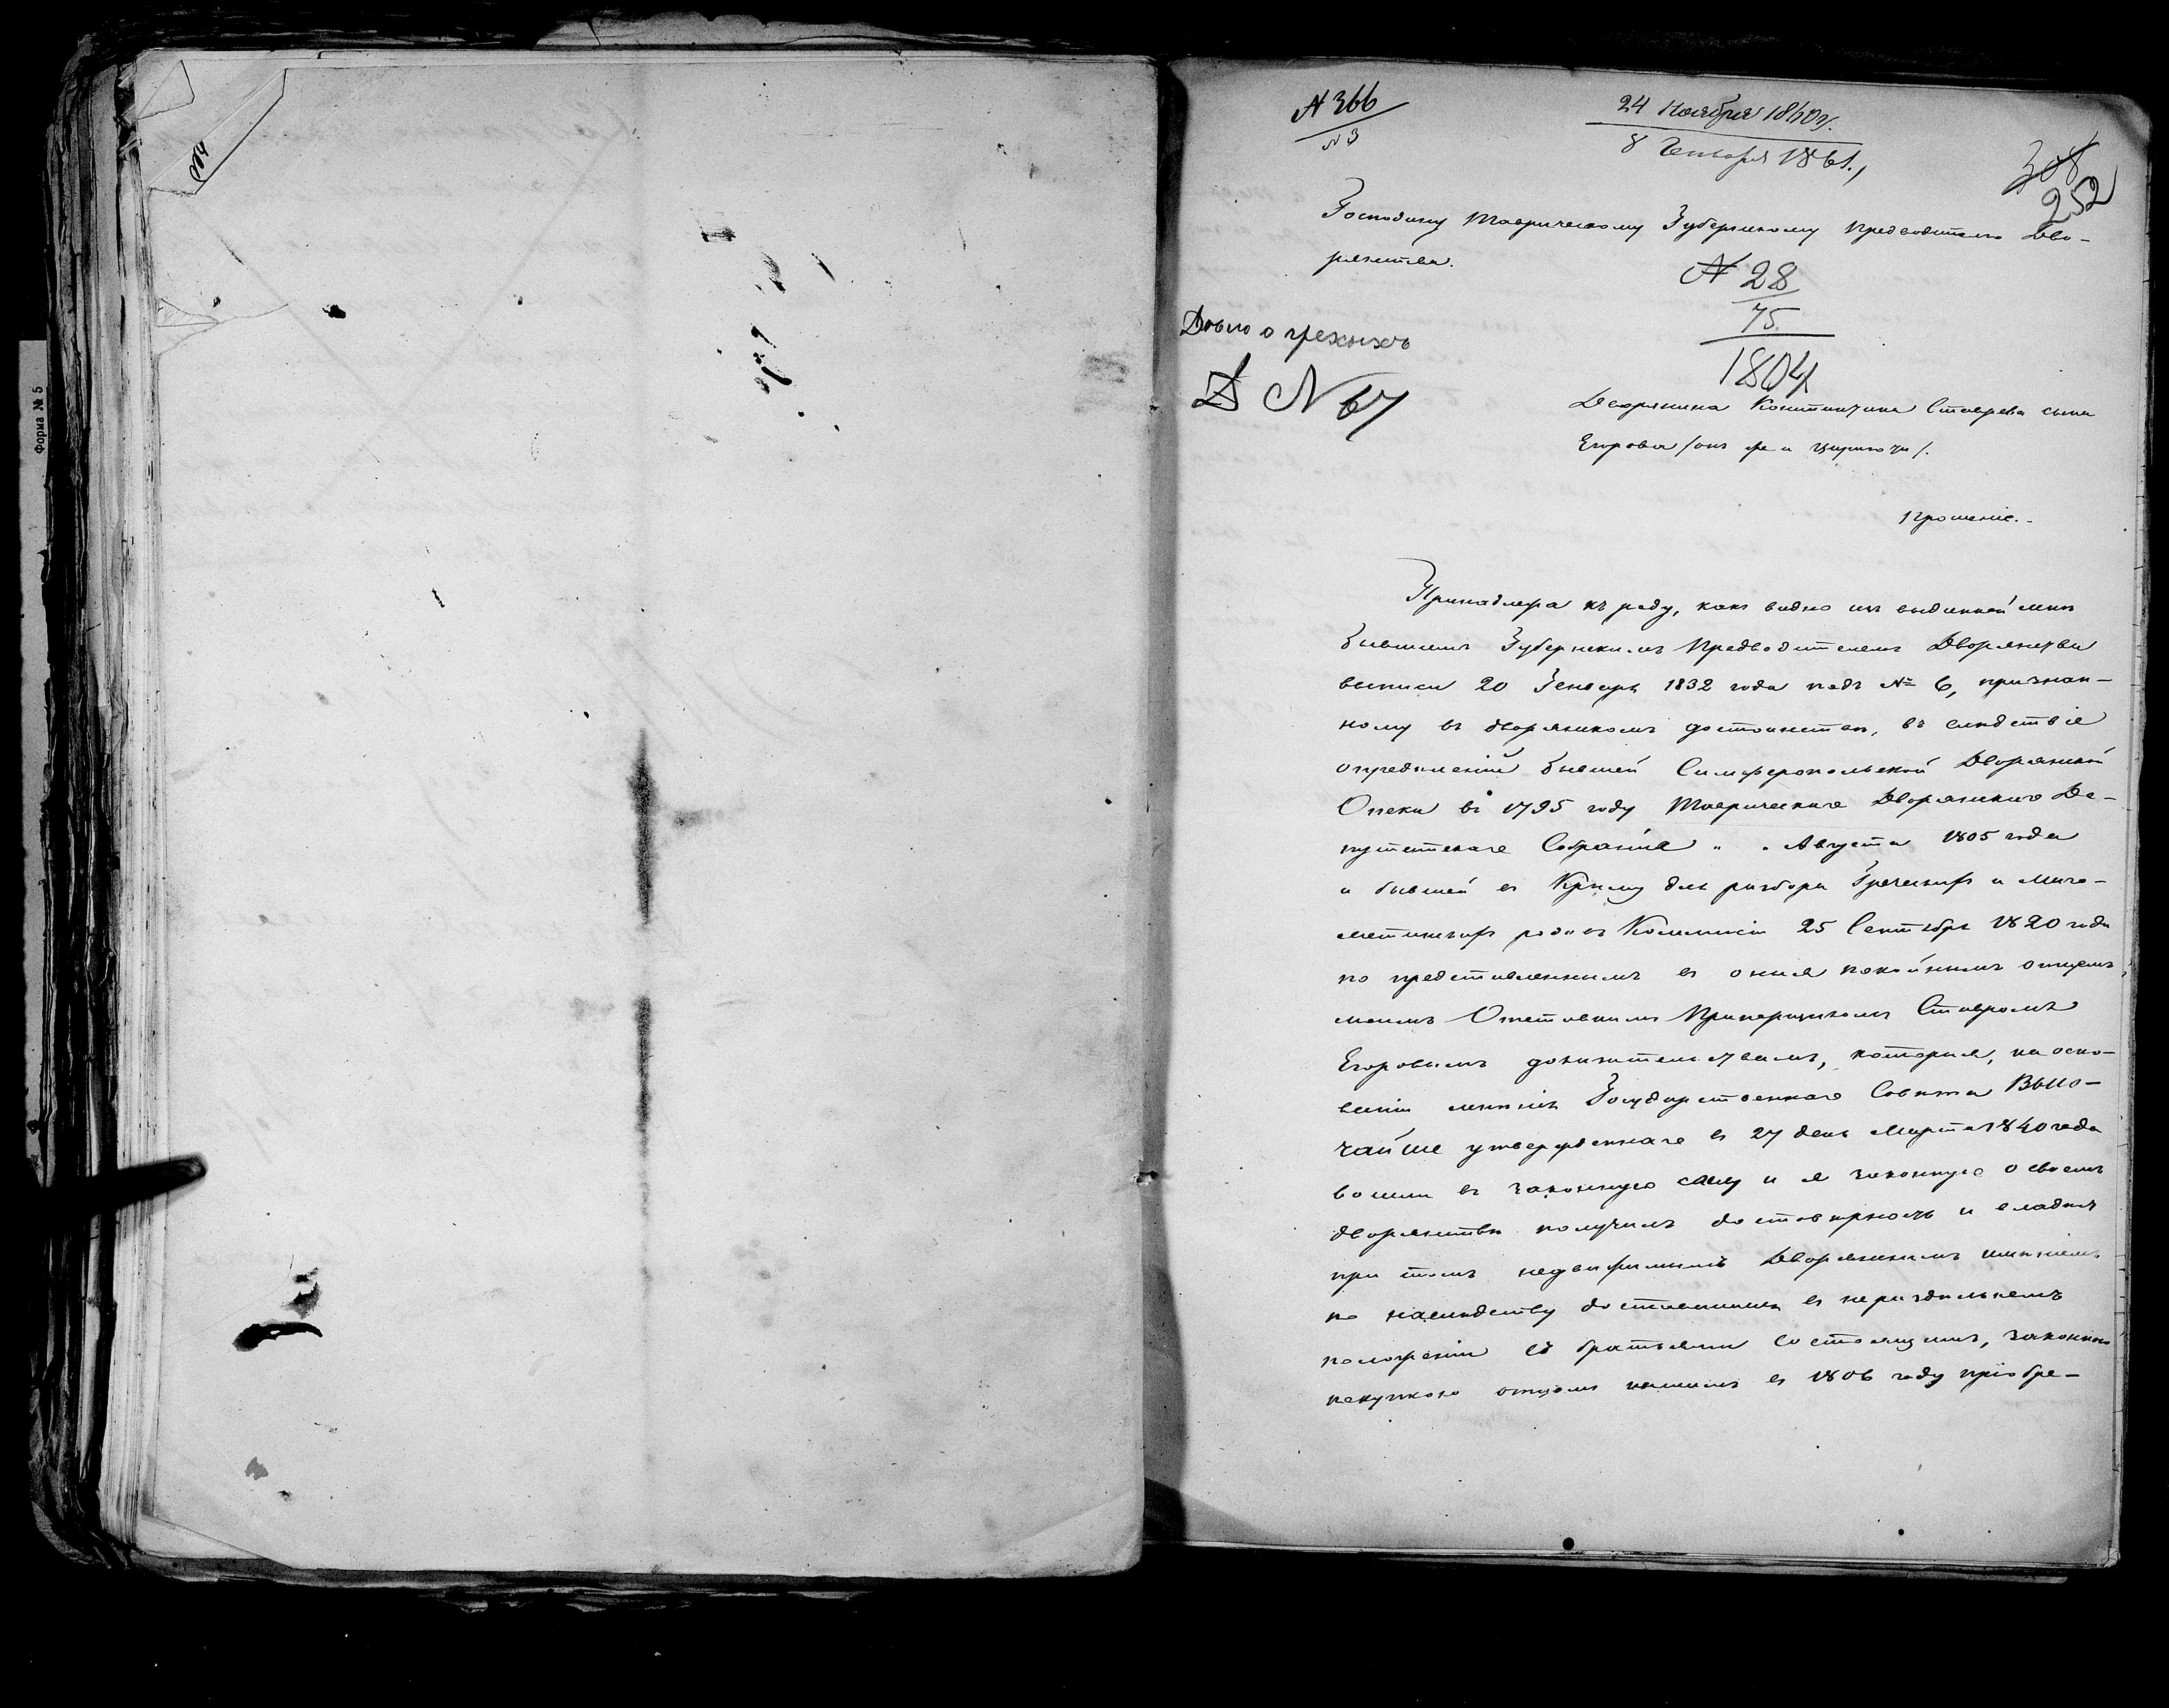 Форма № 5
№ 366
№ 3
24 Ноября 1840 г.
8 Генваря 1861.,
308
252
Господину Таврическому Губернскому Предводителю Дво-
рянства.
№ 28
75.
1804
Дѣло о грекахъ
Д № 67
Дворянина Константина Ставрева сына
Егорова /онъ же и
Прошеніе.
Принадлежа къ роду, какъ видно изъ выданной мнѣ
бывшимъ Губернскимъ Предводителемъ Дворянства
выписи 20 Генваря 1832 года подъ № 6, признан-
ному въ дворянскомъ достоинствѣ, въ слѣдствіе
опредѣленій бывшей Симферопольской Дворянской
Опеки въ 1795 году Таврическаго Дворянскаго Де-
путатскаго Собранія " " Августа 1805 года
и бывшей въ Крыму для разбора Греческихъ и Маго-
метанскихъ родовъ Коммисіи 25 Сентября 1820 года
по представленнымъ въ оныя покойнымъ отцемъ
моимъ Отставнымъ Прапорщикомъ Ставромъ
Егоровымъ доказательствамъ, которыя, на осно-
ваніи мнѣнія Государственнаго Совѣта Высо-
чайше утвержденнаго въ 27 день Марта 1840 года
вошли въ законную силу и я законную о своемъ
дворянствѣ получилъ достовѣрность и владѣя
при томъ недвижимымъ Дворянскимъ имѣніемъ
по наслѣдству доставшимся въ нераздѣльномъ
положеніи съ братьями состоящимъ, законною
покупкою отцомъ нашимъ въ 1806 году пріобре-